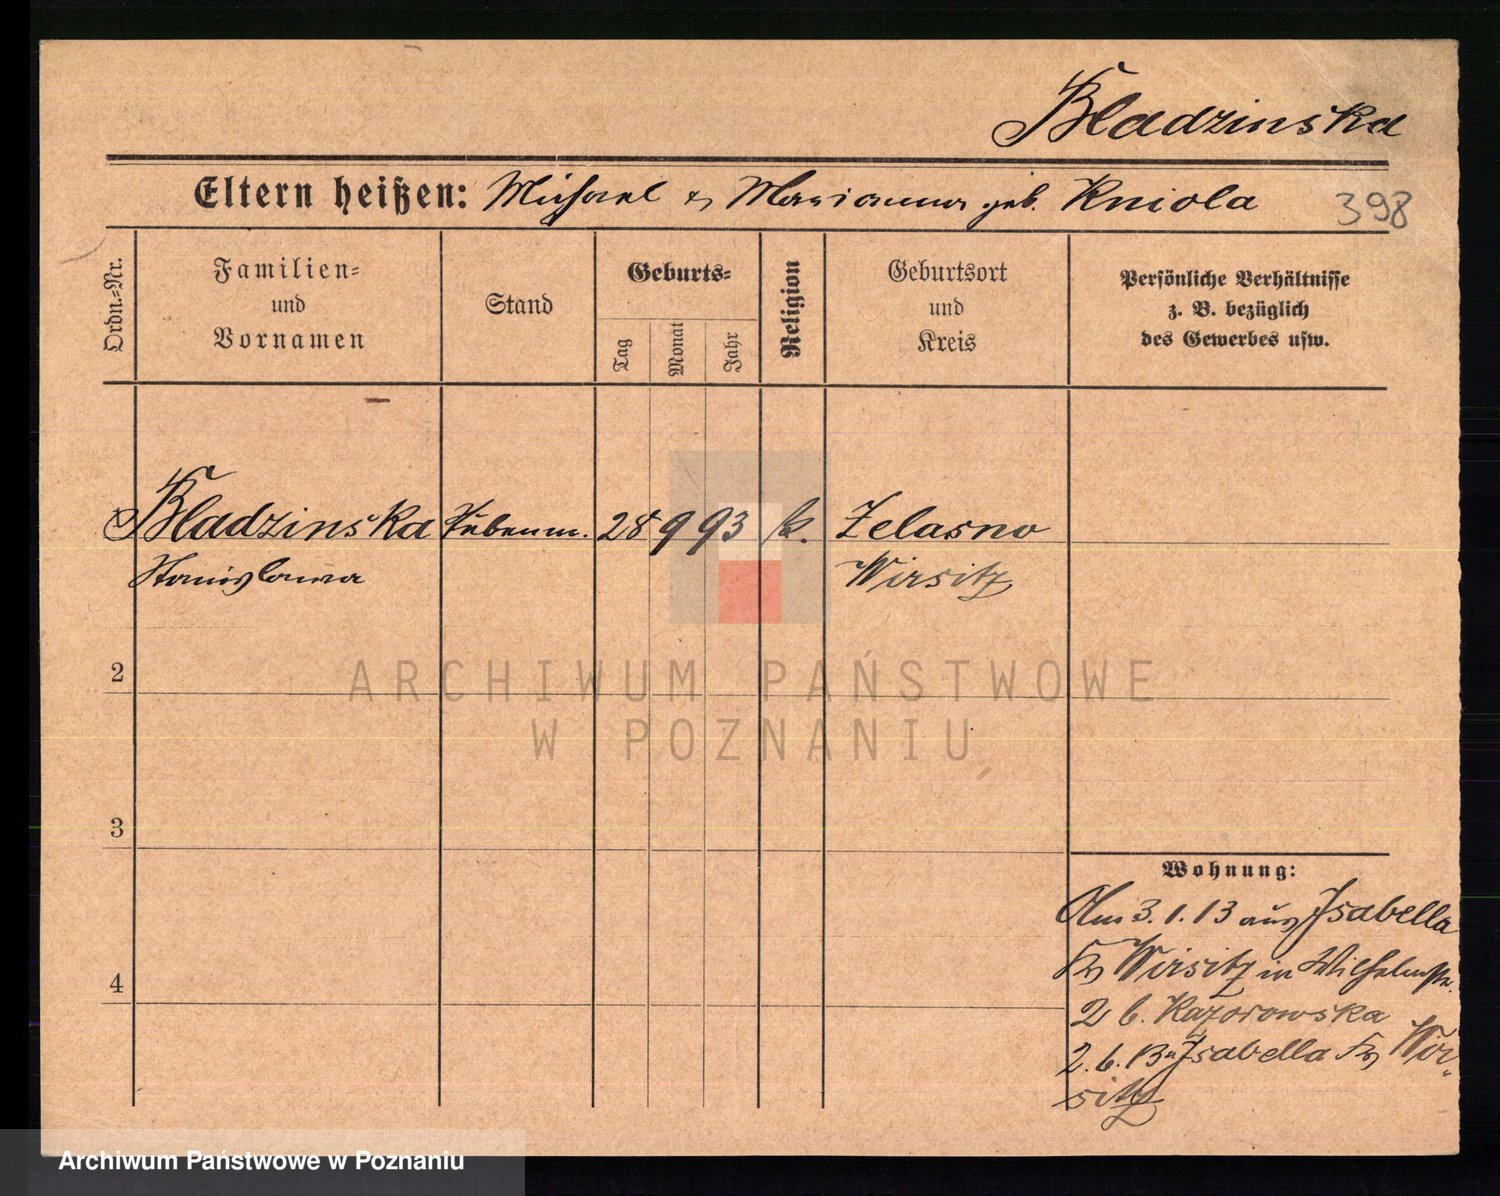 Bladzinska
Eltern heißen: Michael & Marianna geb. Kniola
398
Ordn.=Nr.
Familien=
und
Vornamen
Stand
Geburts=
Tag
Monat
Jahr
Religion
Geburtsort
und
Kreis
Persönliche Verhältnisse
z. B. bezüglich
des Gewerbes usw.
Bladzinska
Stanislawa
28 9 93 k. Zelasno
Wirsitz
2
3
4
Wohnung:
Am 3.1.13 aus Isabella
Kr Wirsitz in Wilhelmstr.
2 b.
2.6.13 n Isabella Kr Wir-
sitz
ARCHIWUM PAŃSTWOWE
W POZNANIU
Archiwum Państwowe w Poznaniu